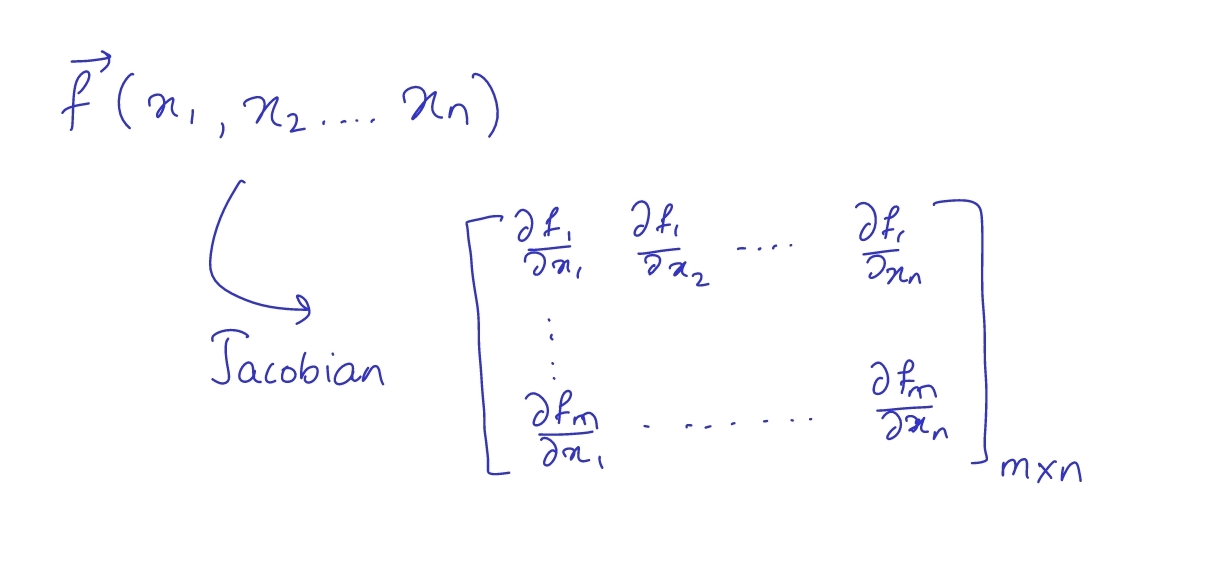 f⃗ (x₁, x₂ .... xₙ)
Jacobian
∂f₁/∂x₁ ∂f₁/∂x₂ .... ∂f₁/∂xₙ
⋮
∂fₘ/∂x₁ ........ ∂fₘ/∂xₙ
m×n